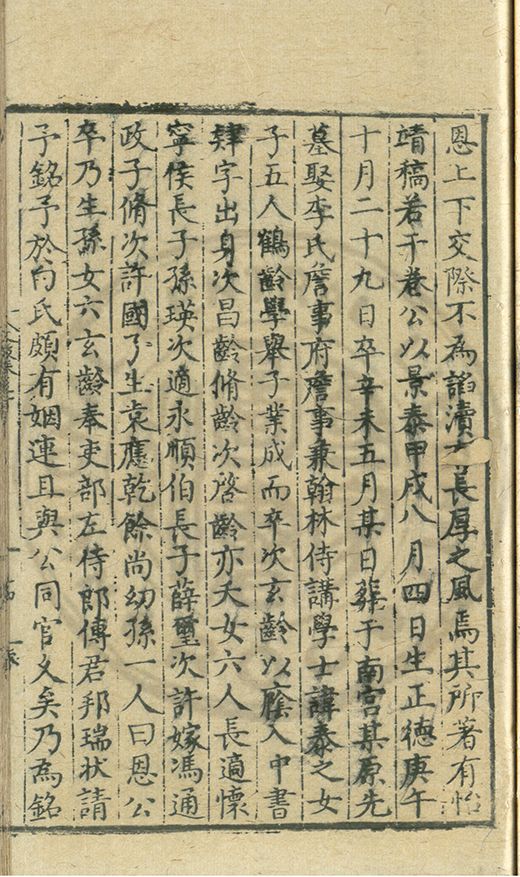 恩上下交際不為諂瀆大長厚之風焉其所著有怡
靖稿若干卷公以景泰甲戌八月四日生正德庚午
十月二十九日卒辛未五月某日葬于南宮某原先
墓娶李氏詹事府詹事兼翰林侍講學士諱泰之女
子五人鶴齡學舉子業成而卒次玄齡以廕入中書
肄字出身次昌齡脩齡次啓齡亦夭女六人長適懷
寧侯長子孫瑛次適永順伯長子薛璽次許嫁馮通
政子脩次許國子生袁應乾餘尚幼孫一人曰恩公
卒乃生孫女六玄齡奉吏部左侍郎傅君邦瑞狀請
予銘予於白氏頗有姻連且與公同官久矣乃為銘